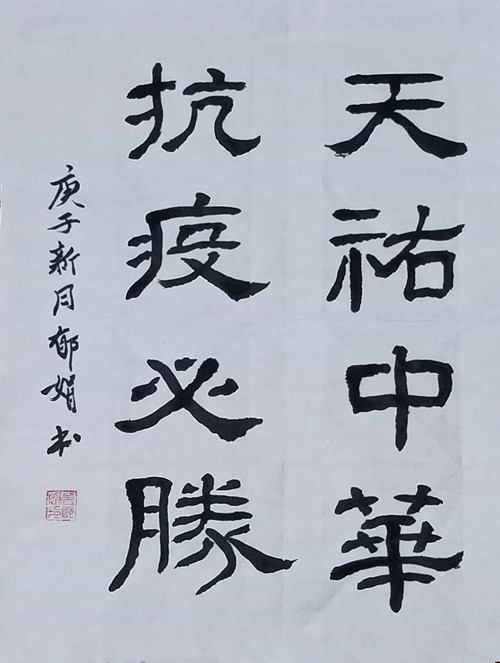 天祐中華
抗疫必勝
庚子新月郁娟书